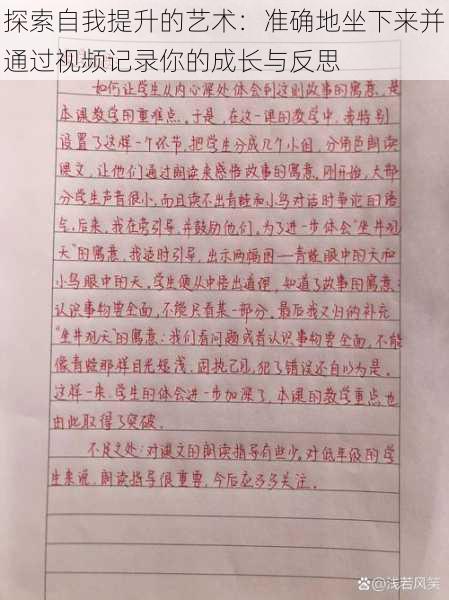 探索自我提升的艺术：准确地坐下来并
通过视频记录你的成长与反思
如何让学生从内心深处体会到这则故事的寓意，是
本课教学的重难点。于是，在这一课的教学中，我特别
设置了这样一个环节，把学生分成几个小组，分角色朗读
课文，让他们通过朗读来感悟故事的寓意。刚开始，大部
分学生声音很小，而且读不出青蛙和小鸟对话时争论的语
气，后来，我在旁引导，并鼓励他们，为了进一步体会“坐井观
天”的寓意，我适时引导，出示两幅图——青蛙眼中的天和
小鸟眼中的天，学生便从中悟出道理，知道了故事的寓意：
认识事物要全面，不能只看某一部分，最后我又归纳补充
“坐井观天”的寓意：我们看问题或者认识事物要全面，不能
像青蛙那样目光短浅、固执己见，犯了错误还自以为是。
这样一来，学生的体会进一步加深了，本课的教学重点也
由此取得了突破。
不足之处：对课文的朗读指导有些少，对低年级的学
生来说，朗读指导很重要，今后应多多关注。
@浅若风笑